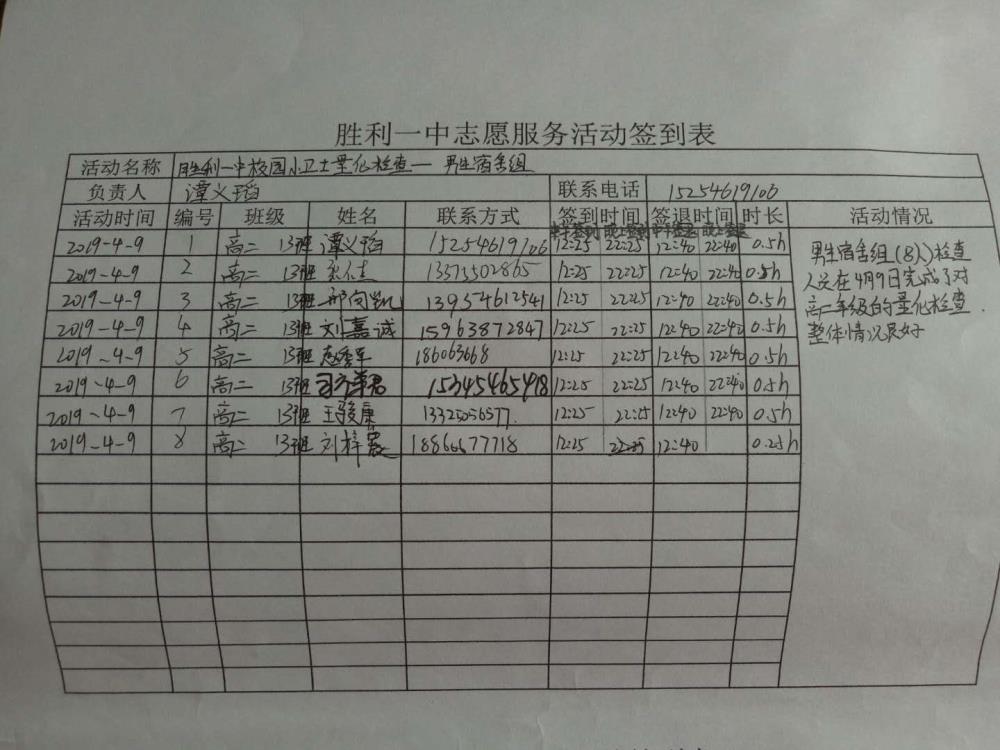 胜利一中志愿服务活动签到表
活动名称 胜利一中校园小卫士量化检查— 男生宿舍组
负责人 谭义韬 联系电话 15254619106
活动时间 编号 班级 姓名 联系方式 签到时间 签退时间 时长 活动情况
中午签到 晚上签到 中午签退 晚上签退
2019-4-9 1 高二 13班 谭义韬 15254619106 12:25 22:25 12:40 22:40 0.5h
2019-4-9 2 高二 13班 13573502865 12:25 22:25 12:40 22:40 0.5h
2019-4-9 3 高二 13班 邢向凯 13954612541 12:25 22:25 12:40 22:40 0.5h
2019-4-9 4 高二 13班 刘嘉诚 15963872847 12:25 22:25 12:40 22:40 0.5h
2019-4-9 5 高二 13班 186063668 12:25 22:25 12:40 22:40 0.5h
2019-4-9 6 高二 13班 15345465418 12:25 22:25 12:40 22:40 0.5h
2019-4-9 7 高二 13班 王骏康 13325056577 12:25 22:25 12:40 22:40 0.5h
2019-4-9 8 高二 13班 刘梓宸 18866677718 12:25 12:40 0.25h
男生宿舍组(8人)检查
人员在4月9日完成了对
高二年级的量化检查.
整体情况良好